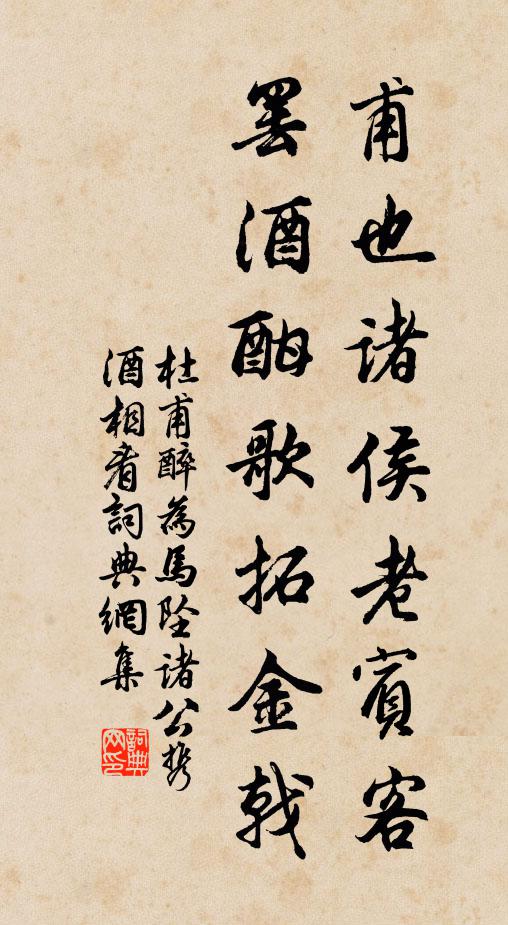 甫也諸侯老賓客
罢酒酣歌拓金戟
杜甫醉為馬墜諸公携
酒相看詞典網集
詞典網印